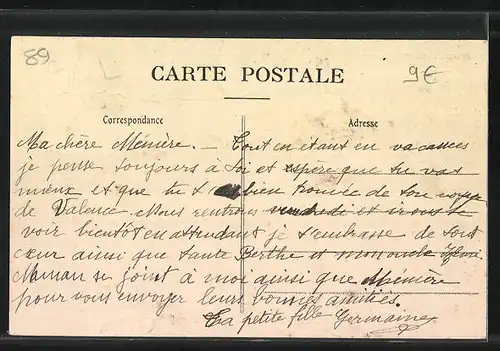 89
CARTE POSTALE
9€
Correspondance
Adresse
Ma chère Mémère. — Tout en étant en vacances
je pense toujours à toi et espère que tu vas
mieux et que tu t'es bien trouvée de ton voyage
de Valence. Nous rentrons vendredi et irons te
voir bientôt en attendant je t'embrasse de tout
cœur ainsi que tante Berthe et mon oncle
Maman se joint à moi ainsi que Mémère
pour vous envoyer leurs bonnes amitiés.
Ta petite fille Germaine